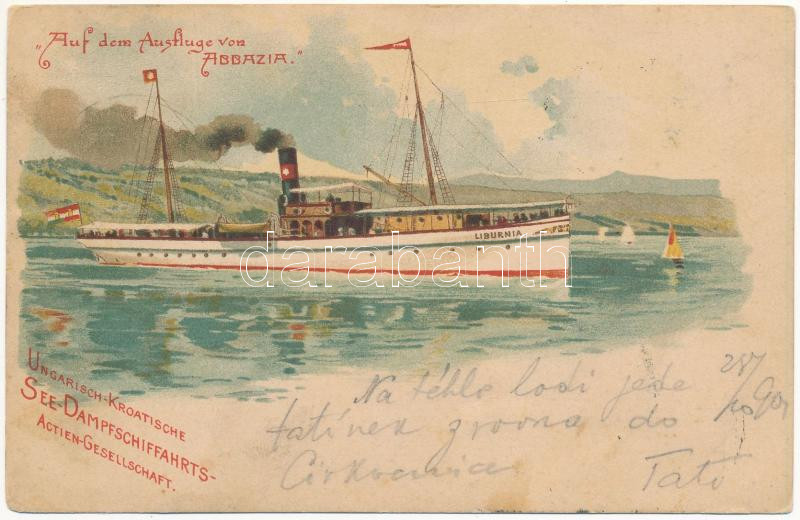 "Auf dem Ausfluge von
ABBAZIA."
LIBURNIA
darabanth
UNGARISCH-KROATISCHE
SEE-DAMPFSCHIFFAHRTS-
ACTIEN-GESELLSCHAFT.
Na téhle lodi jede
tatínek zrovna do
Cirkvenice
Tató